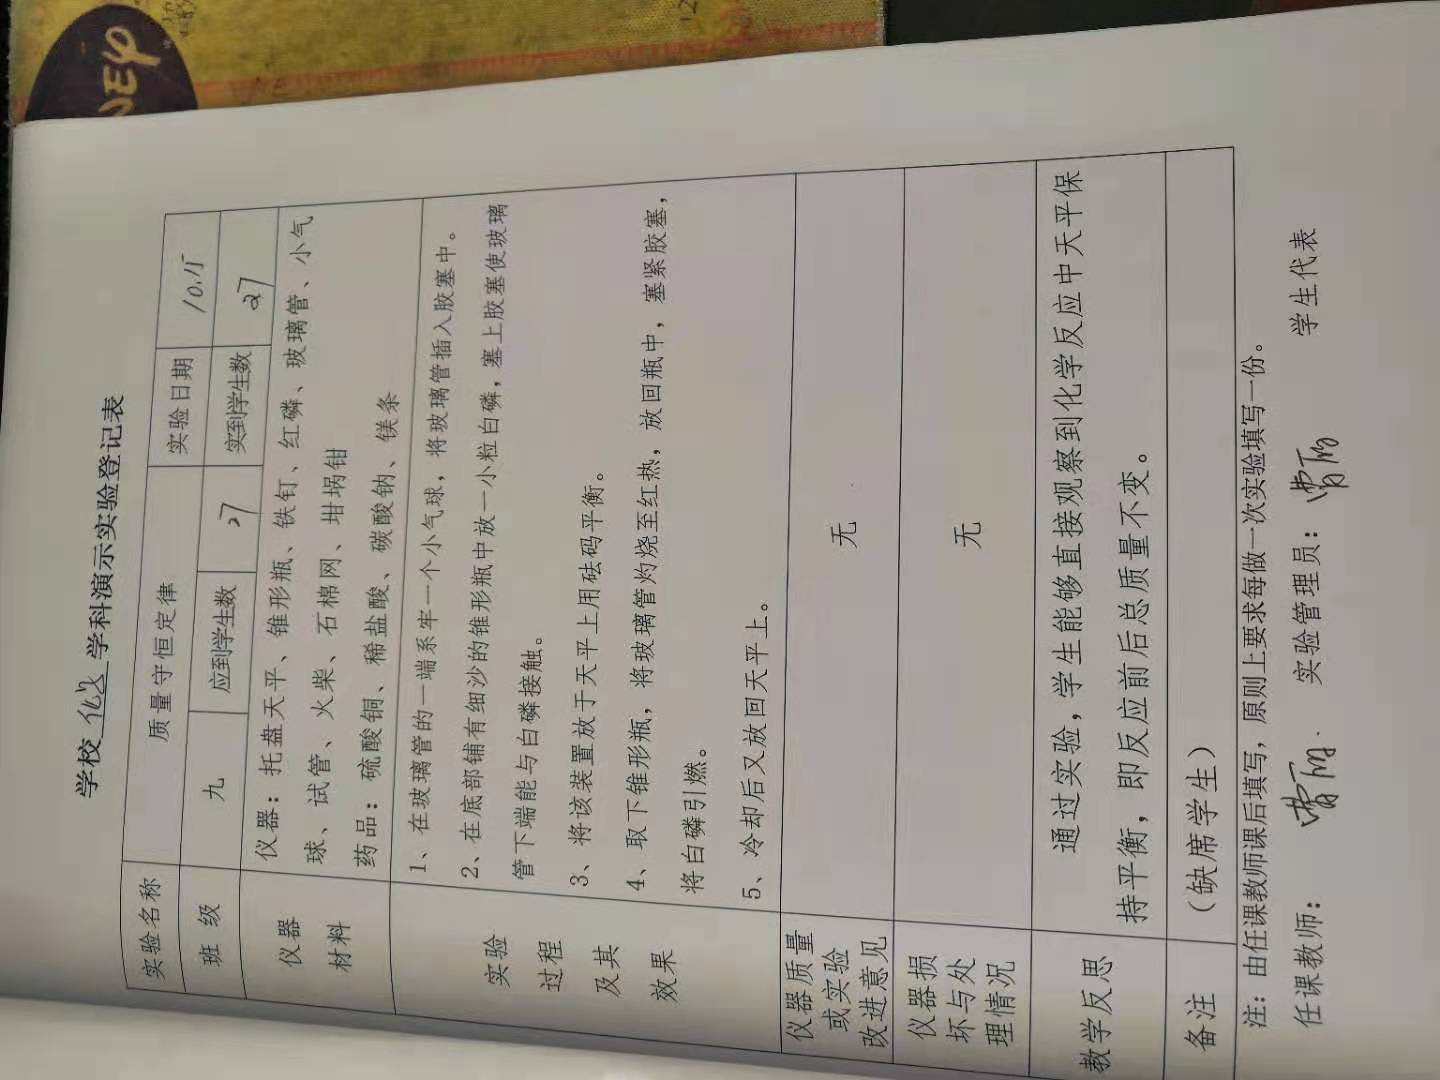 学校 化学 学科演示实验登记表
实验名称 质量守恒定律 实验日期 10.15
班 级 九 应到学生数 27 实到学生数 27
仪器材料
仪器：托盘天平、锥形瓶、铁钉、红磷、玻璃管、小气
球、试管、火柴、石棉网、坩埚钳
药品：硫酸铜、稀盐酸、碳酸钠、镁条
实验
过程
及其
效果
1、在玻璃管的一端系牢一个小气球，将玻璃管插入胶塞中。
2、在底部铺有细沙的锥形瓶中放一小粒白磷，塞上胶塞使玻璃
管下端能与白磷接触。
3、将该装置放于天平上用砝码平衡。
4、取下锥形瓶，将玻璃管灼烧至红热，放回瓶中，塞紧胶塞，
将白磷引燃。
5、冷却后又放回天平上。
仪器质量
或实验
改进意见
无
仪器损
坏与处
理情况
无
教学反思
通过实验，学生能够直接观察到化学反应中天平保
持平衡，即反应前后总质量不变。
备注 （缺席学生）
注：由任课教师课后填写，原则上要求每做一次实验填写一份。
任课教师： 实验管理员： 学生代表